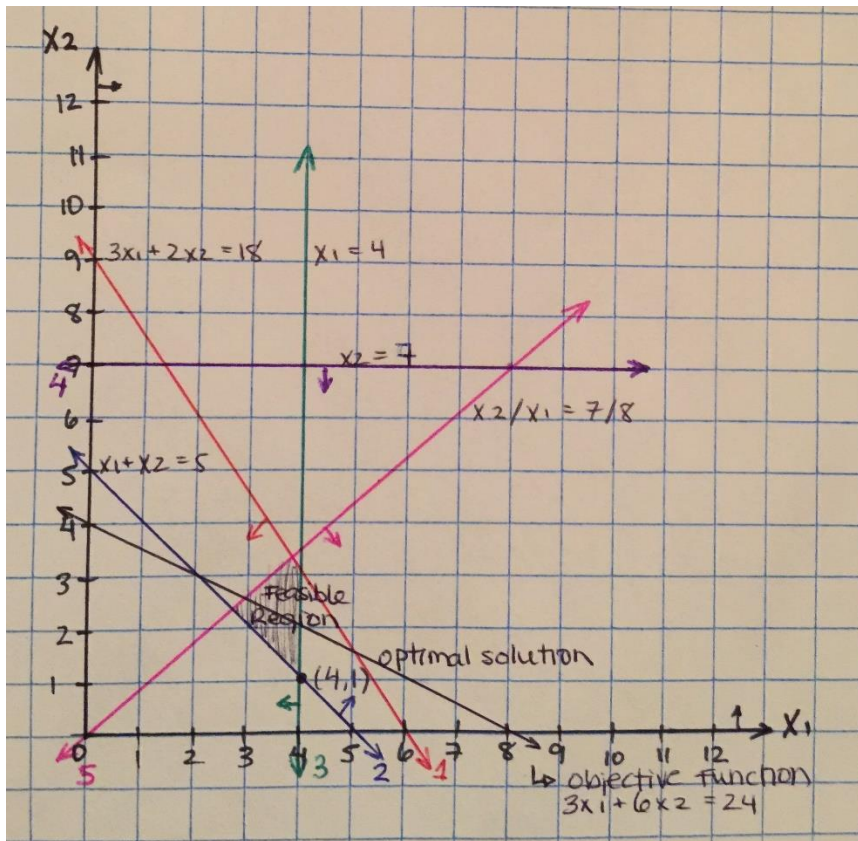 X2
12
11
10
9
3x1 + 2x2 = 18
x1 = 4
8
7
x2 = 7
4
6
x2/x1 = 7/8
5
x1 + x2 = 5
4
3
Feasible
Region
2
optimal solution
1
(4,1)
X1
0 1 2 3 4 5 6 7 8 9 10 11 12
5
3
2
1
↳ objective function
3x1 + 6x2 = 24